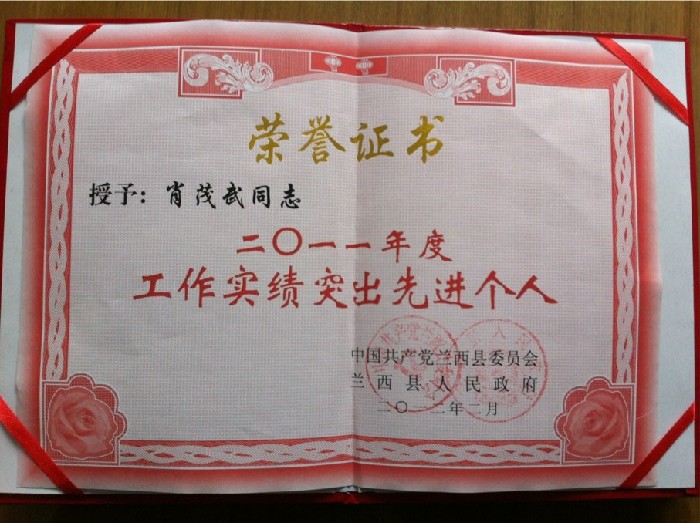 荣誉证书
授予：肖茂武同志
二〇一一年度
工作实绩突出先进个人
中国共产党兰西县委员会
兰西县人民政府
二〇一二年二月